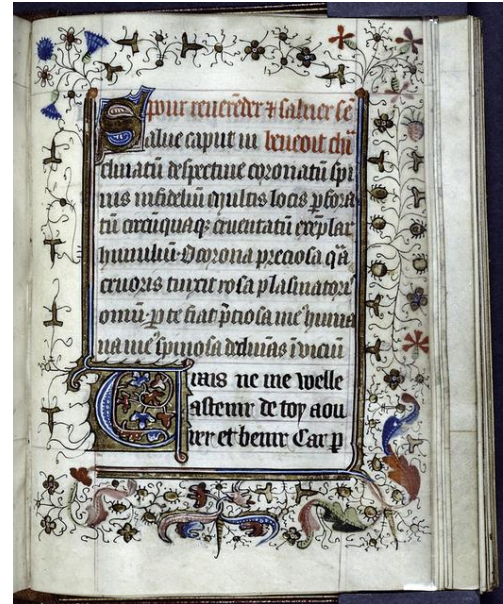 pour reuereder & saluer se
Salue caput in beneoit chi
clinatū despectiue coronatū spi
nis infideliū multis locis ꝑfora
tū circūquaqȝ cruentatū exēplar
humiliū. O corona preciosa quā
cruoris tinxit rosa plasmatoris
omniū ꝑ te fiat p̄ciosa me huma
na me spinosa decliuās ī viciū
rais ne me welle
astenir de toy aou
rer et benir Car p